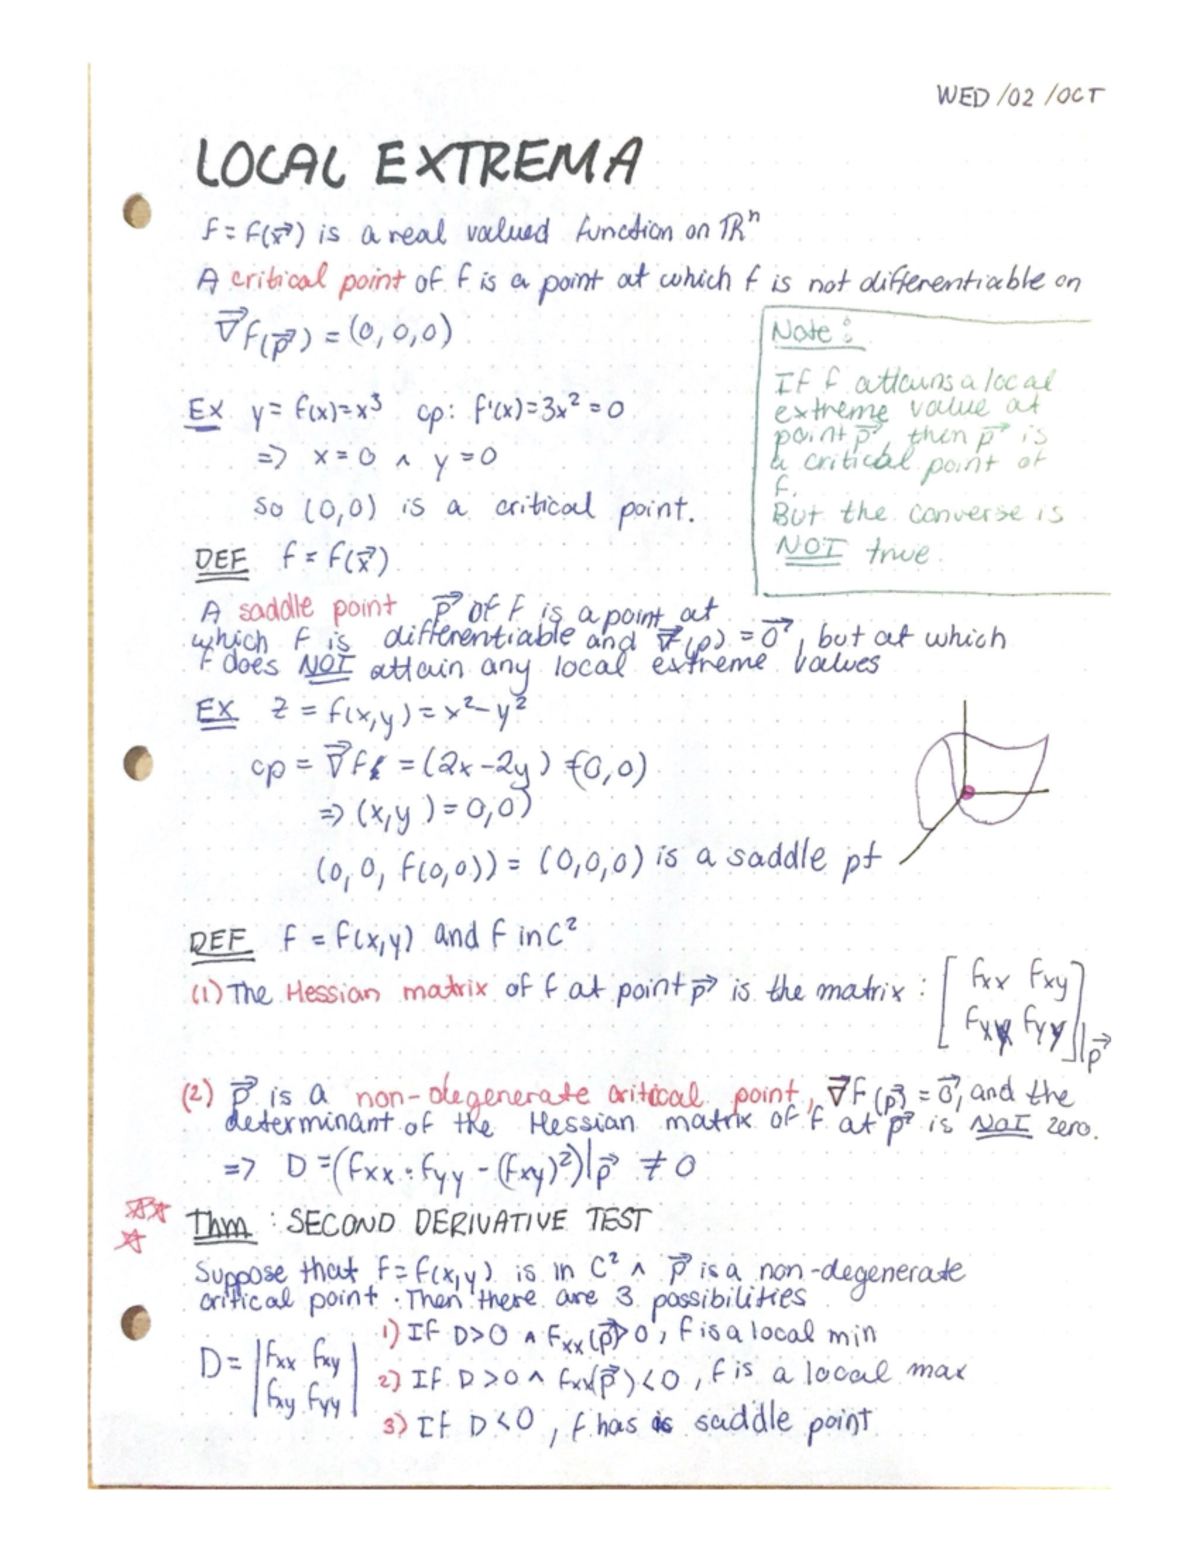 WED /02 /OCT
LOCAL EXTREMA
f = f(x⃗) is a real valued function on ℝⁿ
A critical point of f is a point at which f is not differentiable on
∇⃗f(p⃗) = (0, 0, 0)
Note:
If f attains a local
extreme value at
point p⃗, then p⃗ is
a critical point of
f.
But the converse is
NOT true.
Ex y = f(x) = x³ cp: f'(x) = 3x² = 0
=> x = 0 ∧ y = 0
so (0,0) is a critical point.
DEF f = f(x⃗)
A saddle point p⃗ of f is a point at
which f is differentiable and ∇⃗(p) = 0⃗, but at which
f does NOT attain any local extreme values
EX z = f(x,y) = x² - y²
cp = ∇⃗f = (2x - 2y) = (0,0)
=> (x,y) = 0,0)
(0, 0, f(0,0)) = (0,0,0) is a saddle pt
DEF f = f(x,y) and f in C²
(1) The Hessian matrix of f at point p⃗ is the matrix : [ fxx fxy
fxy fyy ]|p⃗
(2) p⃗ is a non-degenerate critical point, ∇⃗f(p⃗) = 0⃗, and the
determinant of the Hessian matrix of f at p⃗ is NOT zero.
=> D = (fxx · fyy - (fxy)²)|p⃗ ≠ 0
Thm : SECOND DERIVATIVE TEST
Suppose that f = f(x,y) is in C² ∧ p⃗ is a non-degenerate
critical point. Then there are 3 possibilities
1) If D>0 ∧ fxx(p⃗)>0, f is a local min
D = | fxx fxy
fxy fyy |
2) If D>0 ∧ fxx(p⃗)<0, f is a local max
3) If D<0, f has is saddle point